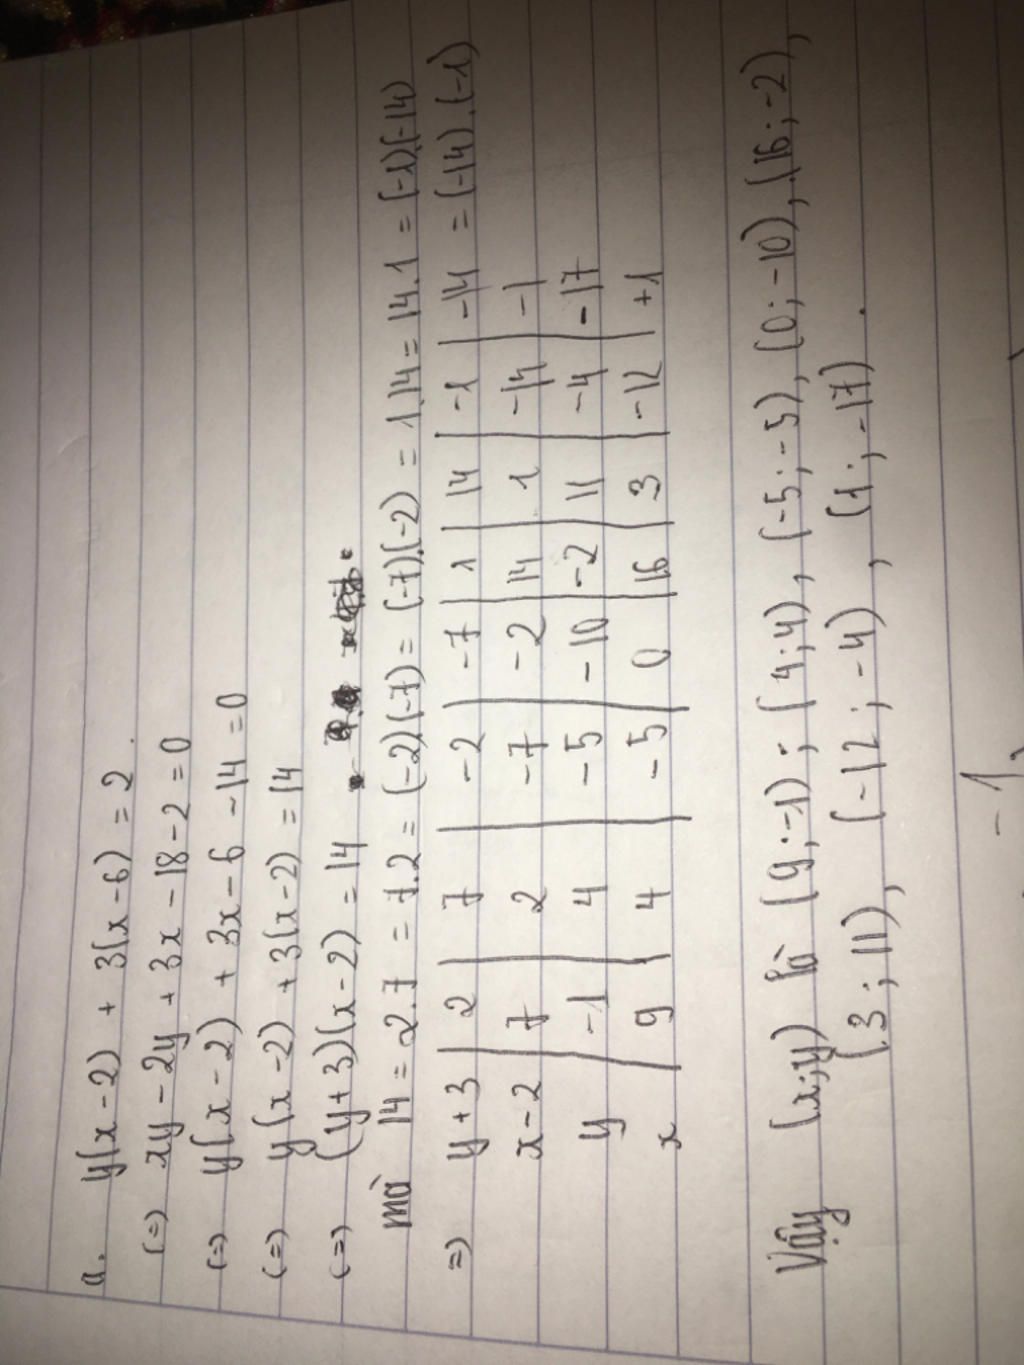 a. y(x-2) + 3(x-6) = 2.
(=) xy - 2y + 3x - 18 - 2 = 0
(=) y(x-2) + 3x - 6 - 14 = 0
(=) y(x-2) + 3(x-2) = 14
(=) (y+3)(x-2) = 14
mà 14 = 2.7 = 7.2 = (-2)(-7) = (-7).(-2) = 1.14 = 14.1 = (-1)(-14)
= (-14).(-1)
=) y+3 | 2 | 7 | -2 | -7 | 1 | 14 | -1 | -14
x-2 | 7 | 2 | -7 | -2 | 14 | 1 | -14 | -1
y | -1 | 4 | -5 | -10 | -2 | 11 | -4 | -17
x | 9 | 4 | -5 | 0 | 16 | 3 | -12 | +1
Vậy (x;y) là (9;-1); (4;4), (-5;-5), (0;-10), (16;-2),
(3;11), (-12;-4), (1;-17).
-1,